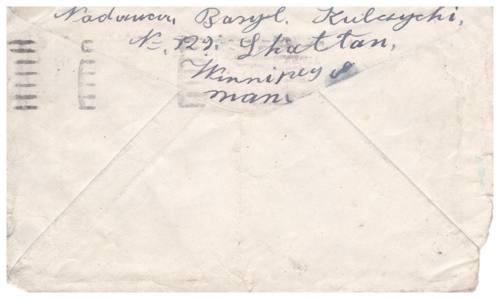 Nadawca, Basyl. Kulczycki,
No. 729. Shattan,
Winnipeg
Man